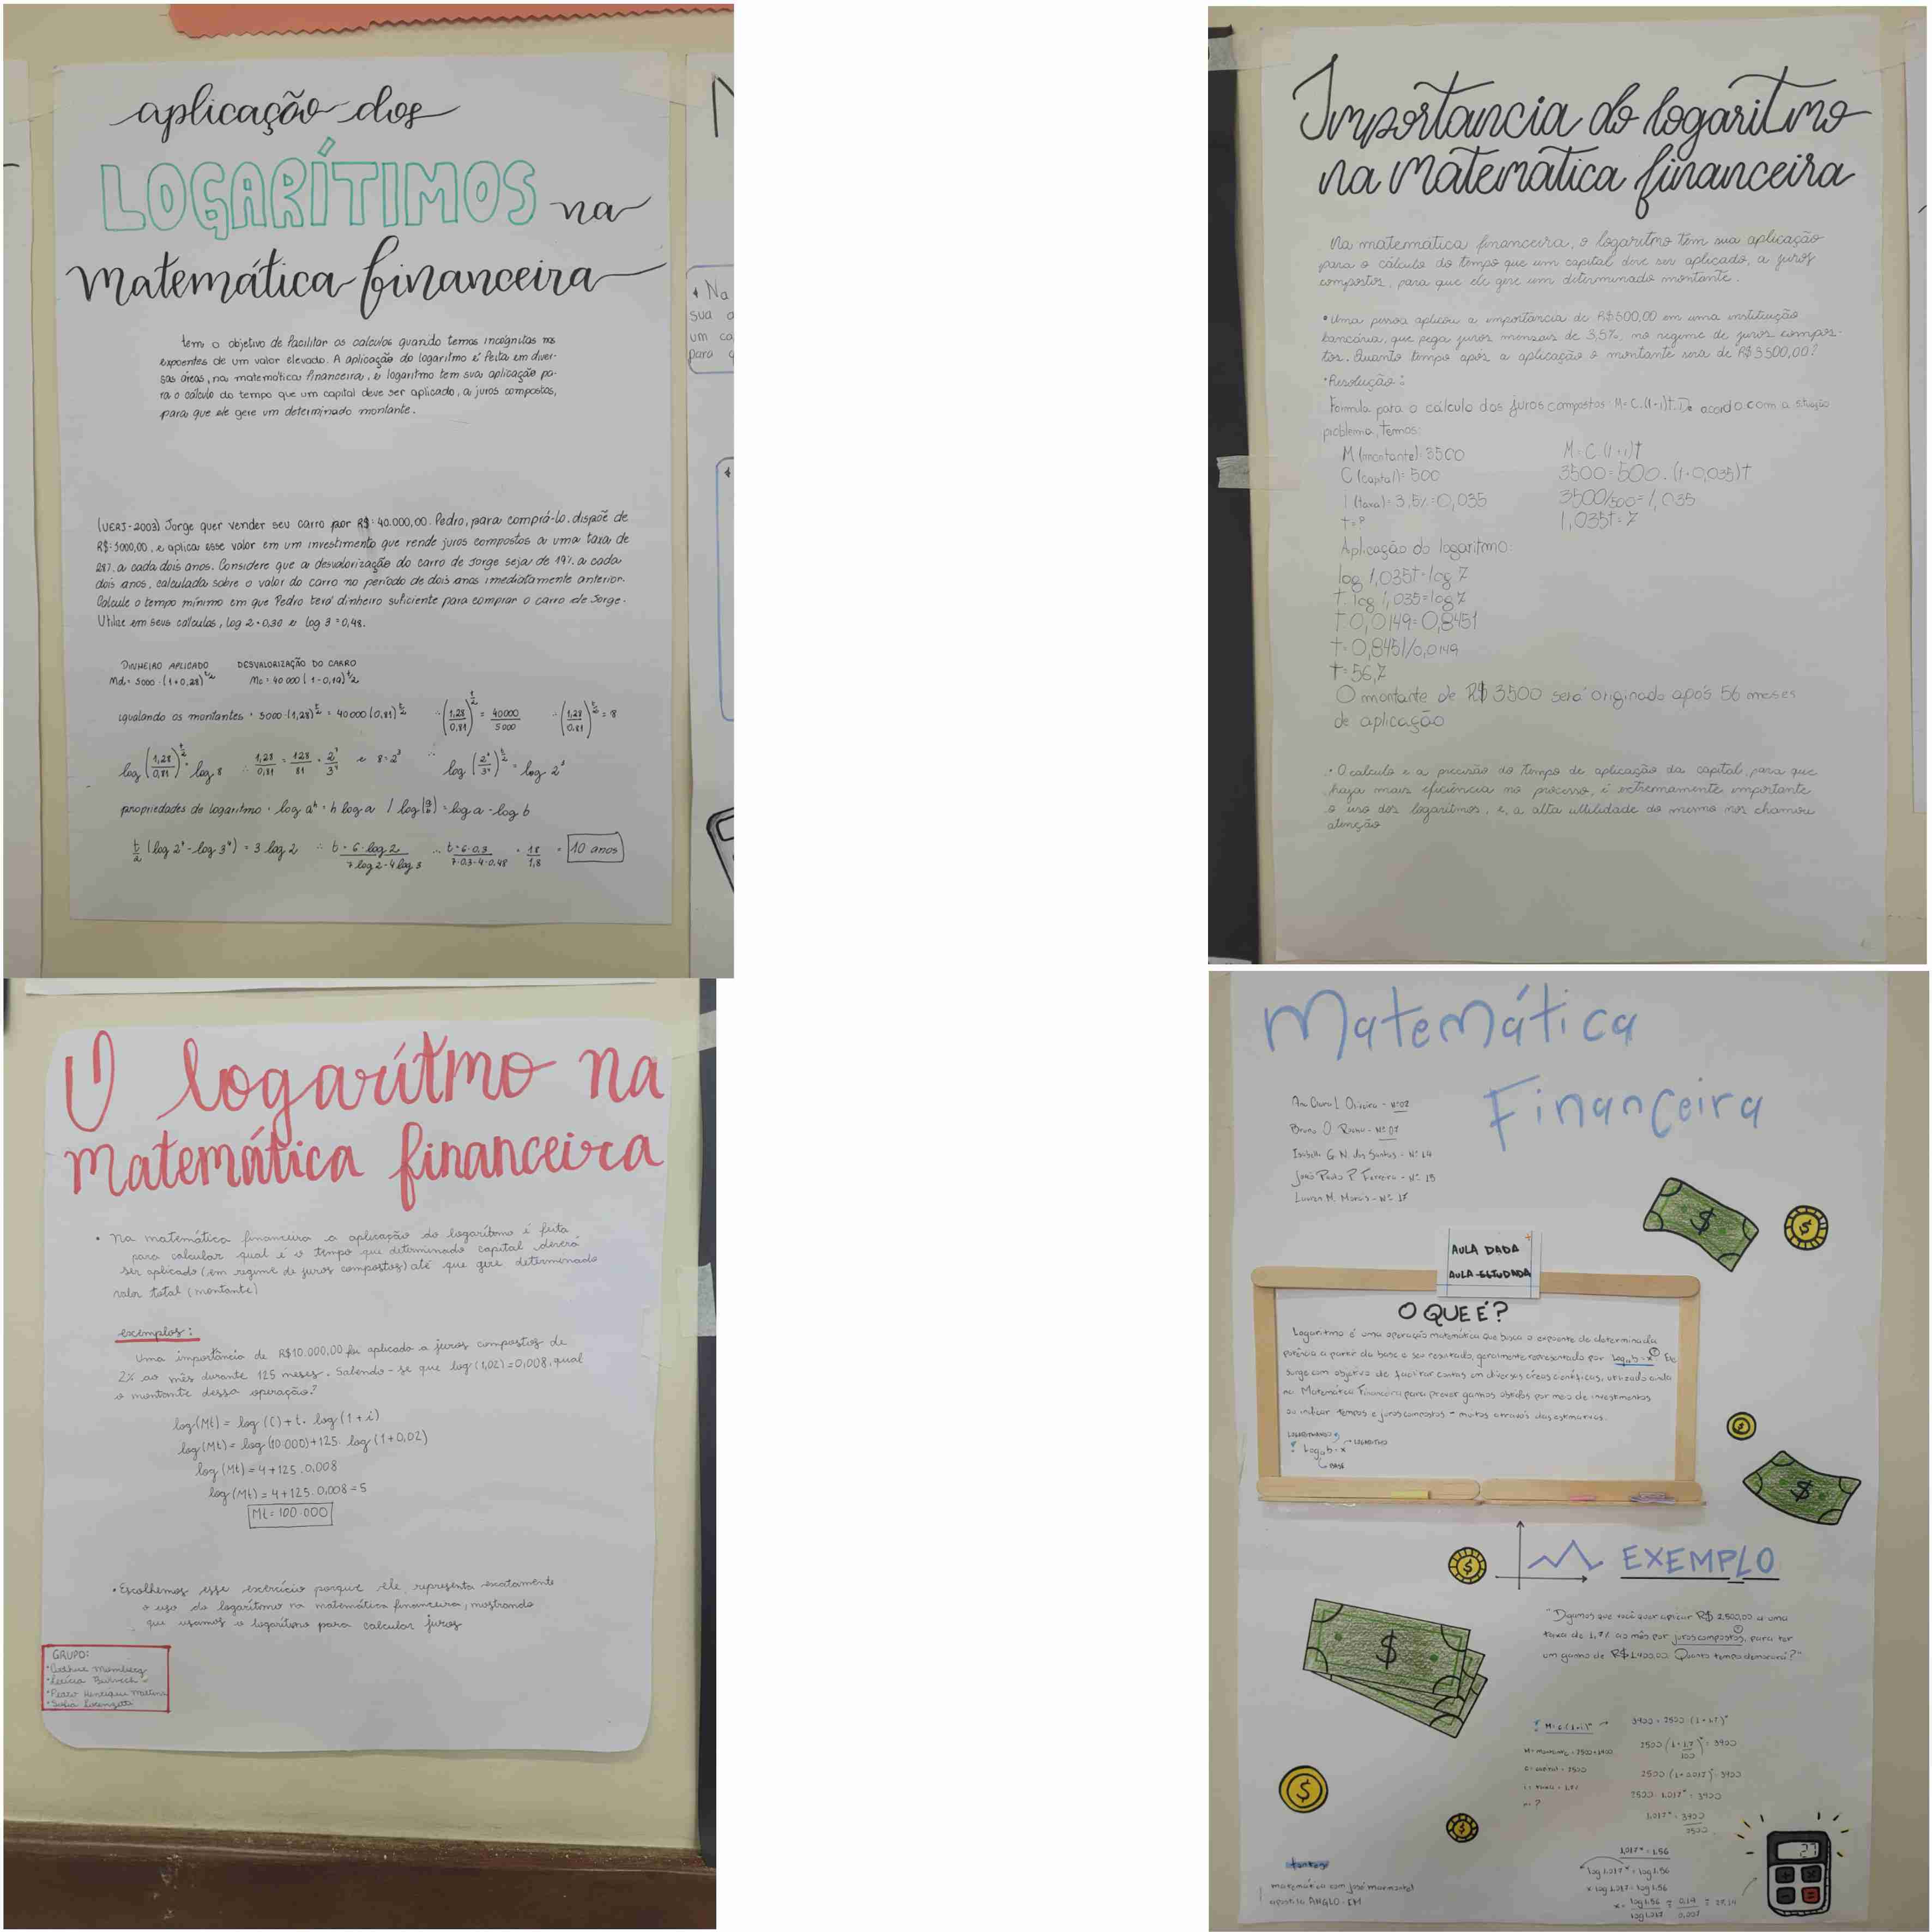 aplicação dos
LOGARÍTIMOS na
matemática financeira
tem o objetivo de facilitar os calculos quando temos incógnitas nos
expoentes de um valor elevado. A aplicação do logaritmo é feita em diver-
sas áreas, na matemática financeira, o logaritmo tem sua aplicação pa-
ra o cálculo do tempo que um capital deve ser aplicado, a juros compostos,
para que ele gere um determinado montante.
(UERJ-2003) Jorge quer vender seu carro por R$ 40.000,00. Pedro, para comprá-lo, dispõe de
R$:5000,00, e aplica esse valor em um investimento que rende juros compostos a uma taxa de
28% a cada dois anos. Considere que a desvalorização do carro de Jorge seja de 19% a cada
dois anos, calculada sobre o valor do carro no período de dois anos imediatamente anterior.
Calcule o tempo mínimo em que Pedro terá dinheiro suficiente para comprar o carro de Jorge.
Utilize em seus calculos, log 2=0,30 e log 3=0,48.
DINHEIRO APLICADO DESVALORIZAÇÃO DO CARRO
Md= 5000·(1+0,28)^t/2 Mc=40 000(1-0,19)^t/2
igualando os montantes = 5000·(1,28)^t/2 = 40000(0,81)^t/2 ∴ (1,28/0,81)^t/2 = 40000/5000 ∴ (1,28/0,81)^t/2 = 8
log (1,28/0,81)^t/2 = log 8 ∴ 1,28/0,81 = 128/81 = 2⁷/3⁴ e 8=2³ ∴ log (2⁷/3⁴)^t/2 = log 2³
propriedades de logaritmo = log aʰ = h log a / log(a/b) = log a - log b
t/2 (log 2⁷ - log 3⁴) = 3 log 2 ∴ t= 6·log 2/7 log 2-4 log 3 ∴ t= 6·0,3/7·0,3-4·0,48 = 18/1,8 = 10 anos
Na
sua a
um ca
para q
Importancia do logaritmo
na matemática financeira
Na matemática financeira, o logaritmo tem sua aplicação
para o cálculo do tempo que um capital deve ser aplicado, a juros
compostos, para que ele gere um determinado montante.
• Uma pessoa aplicou a importância de R$500,00 em uma instituição
bancária, que paga juros mensais de 3,5%, no regime de juros compos-
tos. Quanto tempo após a aplicação o montante será de R$3500,00?
• Resolução:
Fórmula para o cálculo dos juros compostos: M=C.(1+i)t. De acordo com a situação
problema, temos:
M (montante)= 3500 M=C.(1+i)t
C (capital)= 500 3500=500.(1+0,035)t
i (taxa)= 3,5%=0,035 3500/500=1,035
t=? 1,035t=7
Aplicação do logaritmo:
log 1,035t=log 7
t. log 1,035=log 7
t.0,0149=0,8451
t=0,8451/0,0149
t=56,7
O montante de R$ 3500 será originado após 56 meses
de aplicação
• O calculo e a precisão do tempo de aplicação da capital, para que
haja mais eficiência no processo, é extremamente importante
o uso dos logarítimos, e, a alta utilidade do mesmo nos chamou
atenção
O logarítmo na
matemática financeira
• Na matemática financeira a aplicação do logarítmo é feita
para calcular qual é o tempo que determinado capital deverá
ser aplicado (em regime de juros compostos) até que gere determinado
valor total (montante)
exemplos:
Uma importância de R$10.000,00 foi aplicada a juros compostos de
2% ao mês durante 125 meses. Sabendo-se que log (1,02)=0,008, qual
o montante dessa operação?
log(Mt) = log (C) + t. log (1+i)
log(Mt) = log (10.000)+125. log (1+0,02)
log (Mt) = 4 + 125 . 0,008
log (Mt) = 4+125.0,008=5
Mt = 100.000
• Escolhemos esse exercício porque ele representa exatamente
o uso do logarítmo na matemática financeira, mostrando
que usamos o logarítmo para calcular juros
GRUPO:
• Pedro Henrique Martins
Matemática
Financeira
Oliveira - Nº02
Bruno O. - Nº 07
G. N. dos Santos - Nº 14
João Pedro P. Ferreira - Nº 15
M. - Nº 17
AULA DADA
AULA ESTUDADA
O QUE É?
Logaritmo é uma operação matemática que busca o expoente de determinada
potência a partir da base e seu resultado, geralmente representado por logₐb=x. Ele
surge com objetivo de facilitar contas em diversas áreas científicas, utilizado ainda
na Matemática Financeira para prever ganhos obtidos por meio de investimentos
ou indicar tempos e juros compostos - muitos através das estimativas.
LOGARITMANDO
LOGARITMO
Logₐb=x
BASE
EXEMPLO
"Digamos que você quer aplicar R$ 2.500,00 a uma
taxa de 1,7% ao mês por juros compostos, para ter
um ganho de R$1.400,00. Quanto tempo demorará?"
M=c.(1+i)ⁿ 3900 = 2500·(1+1,7)ⁿ
M= montante = 2500+1400 2500 (1+1,7/100)ⁿ = 3900
c= capital = 2500 2500 (1+0,017)ⁿ = 3900
i= taxa = 1,7% 2500·1,017ˣ = 3900
n= ? 1,017ˣ = 3900/2500
1,017ˣ = 1,56
log 1,017ˣ = log 1,56
x log 1,017 = log 1,56
x= log 1,56/log 1,017 = 0,19/0,007 = 27,14
27
matemática com josé
apostila ANGLO - EM